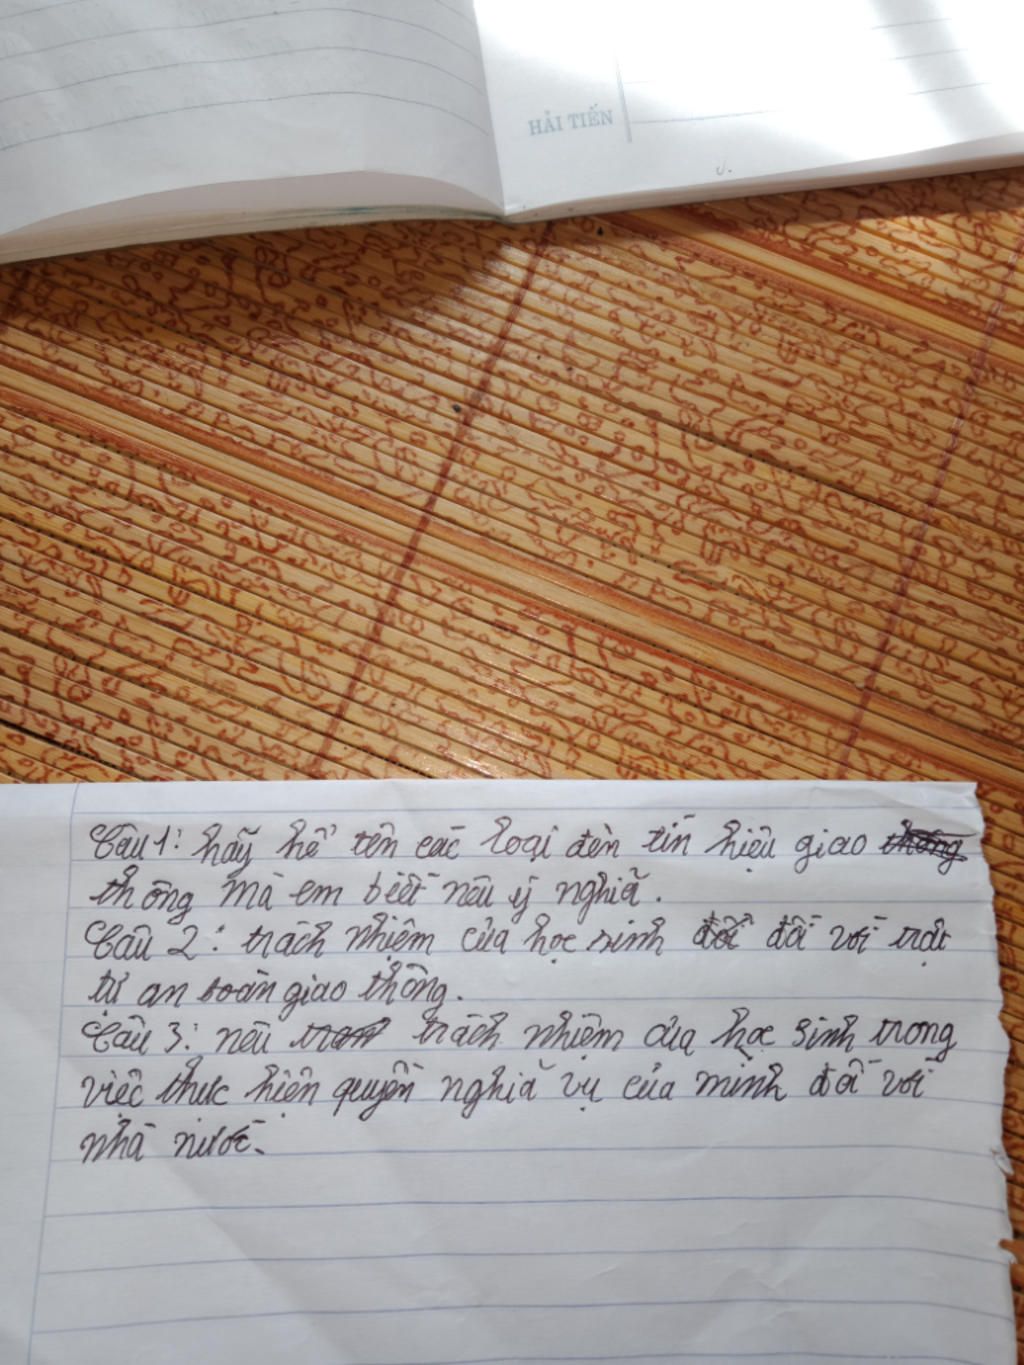 HẢI TIẾN
Câu 1: hãy kể tên các loại đèn tín hiệu giao
thông mà em biết nêu ý nghĩa.
Câu 2: trách nhiệm của học sinh đối với trật
tự an toàn giao thông.
Câu 3: nêu trách nhiệm của học sinh trong
việc thực hiện quyền nghĩa vụ của mình đối với
nhà nước.